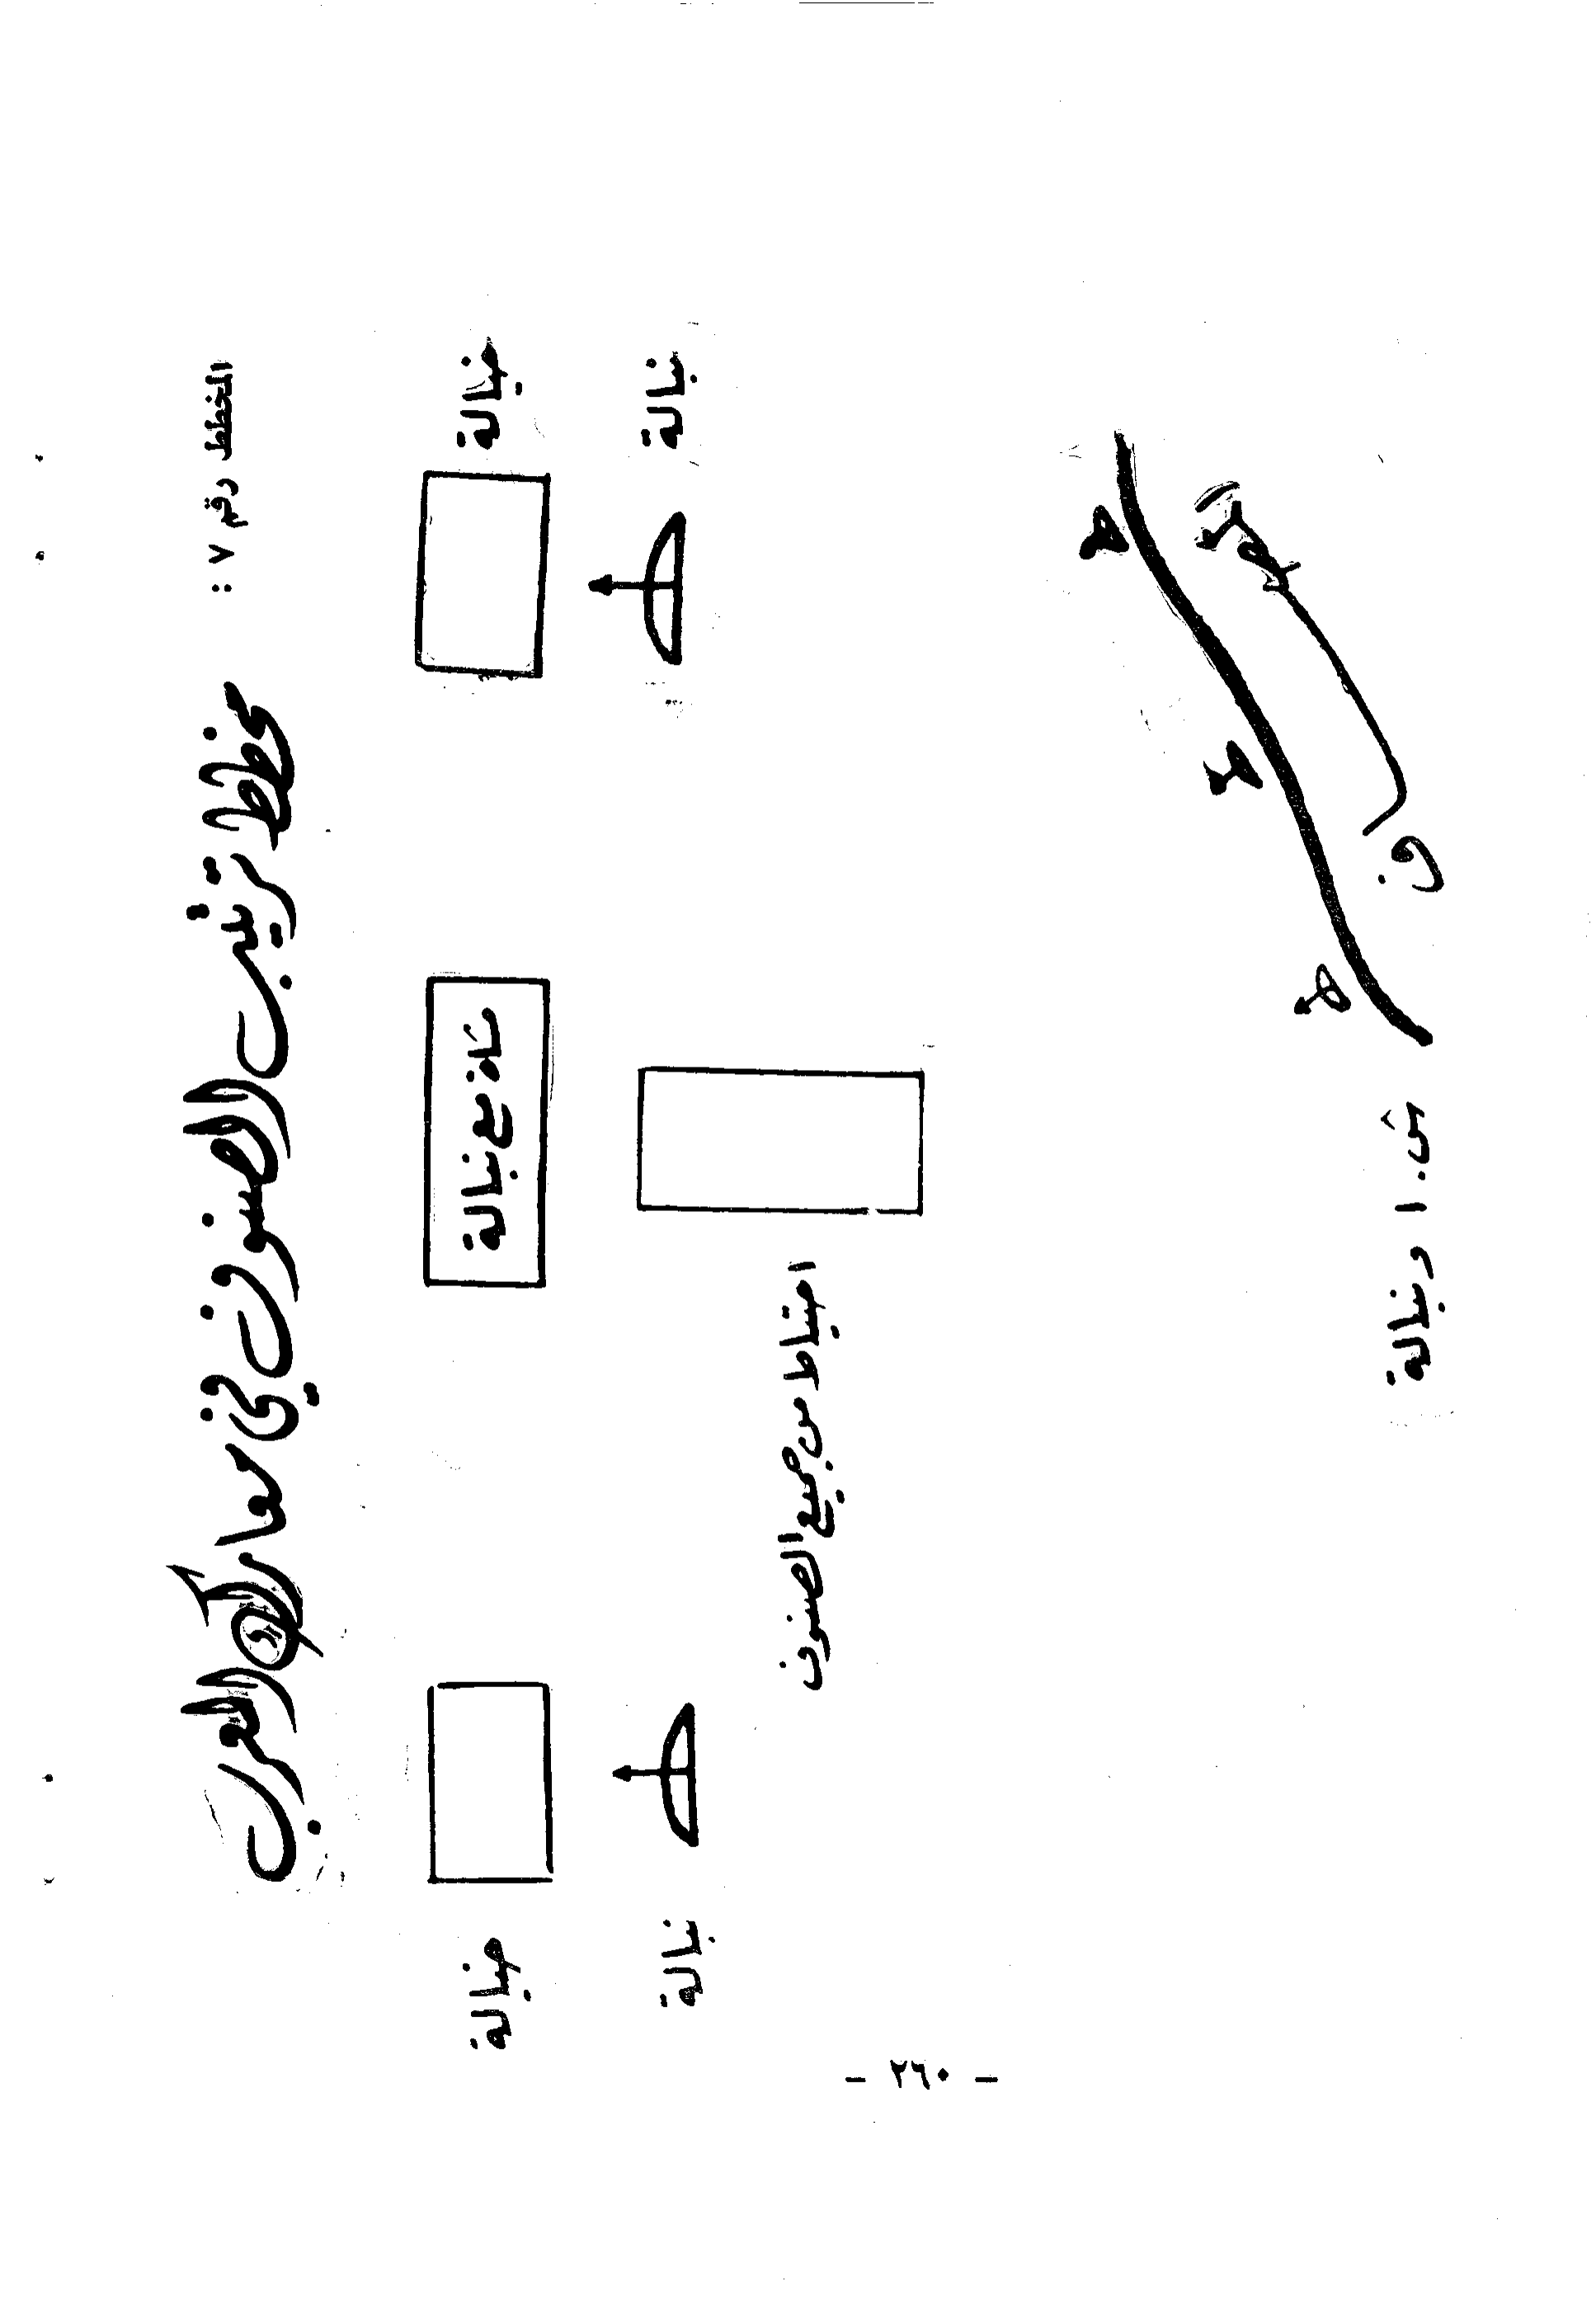 المخطط رقم ٧ :
مخطط ترتيب الصنوف في معارك العرب
خيالة
خيالة
مشاة مع نبالة
نبالة
نبالة
احتياط من جميع الصنوف
ش . ا ونبالة
- ٢٦٠ -